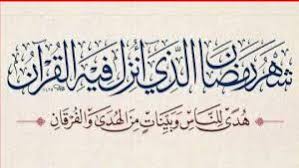 شَهْرُ رَمَضَانَ الَّذِي أُنْزِلَ فِيهِ الْقُرْآنُ
هُدًى لِلنَّاسِ وَبَيِّنَاتٍ مِنَ الْهُدَى وَالْفُرْقَانِ